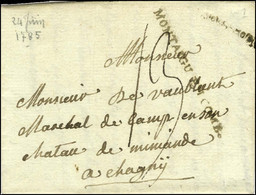 24 juin
1785
MONTAIGU
Monsieur
Monsieur De vaublant
Marechal de Camp en son
chatau de mimande
a chagny
13